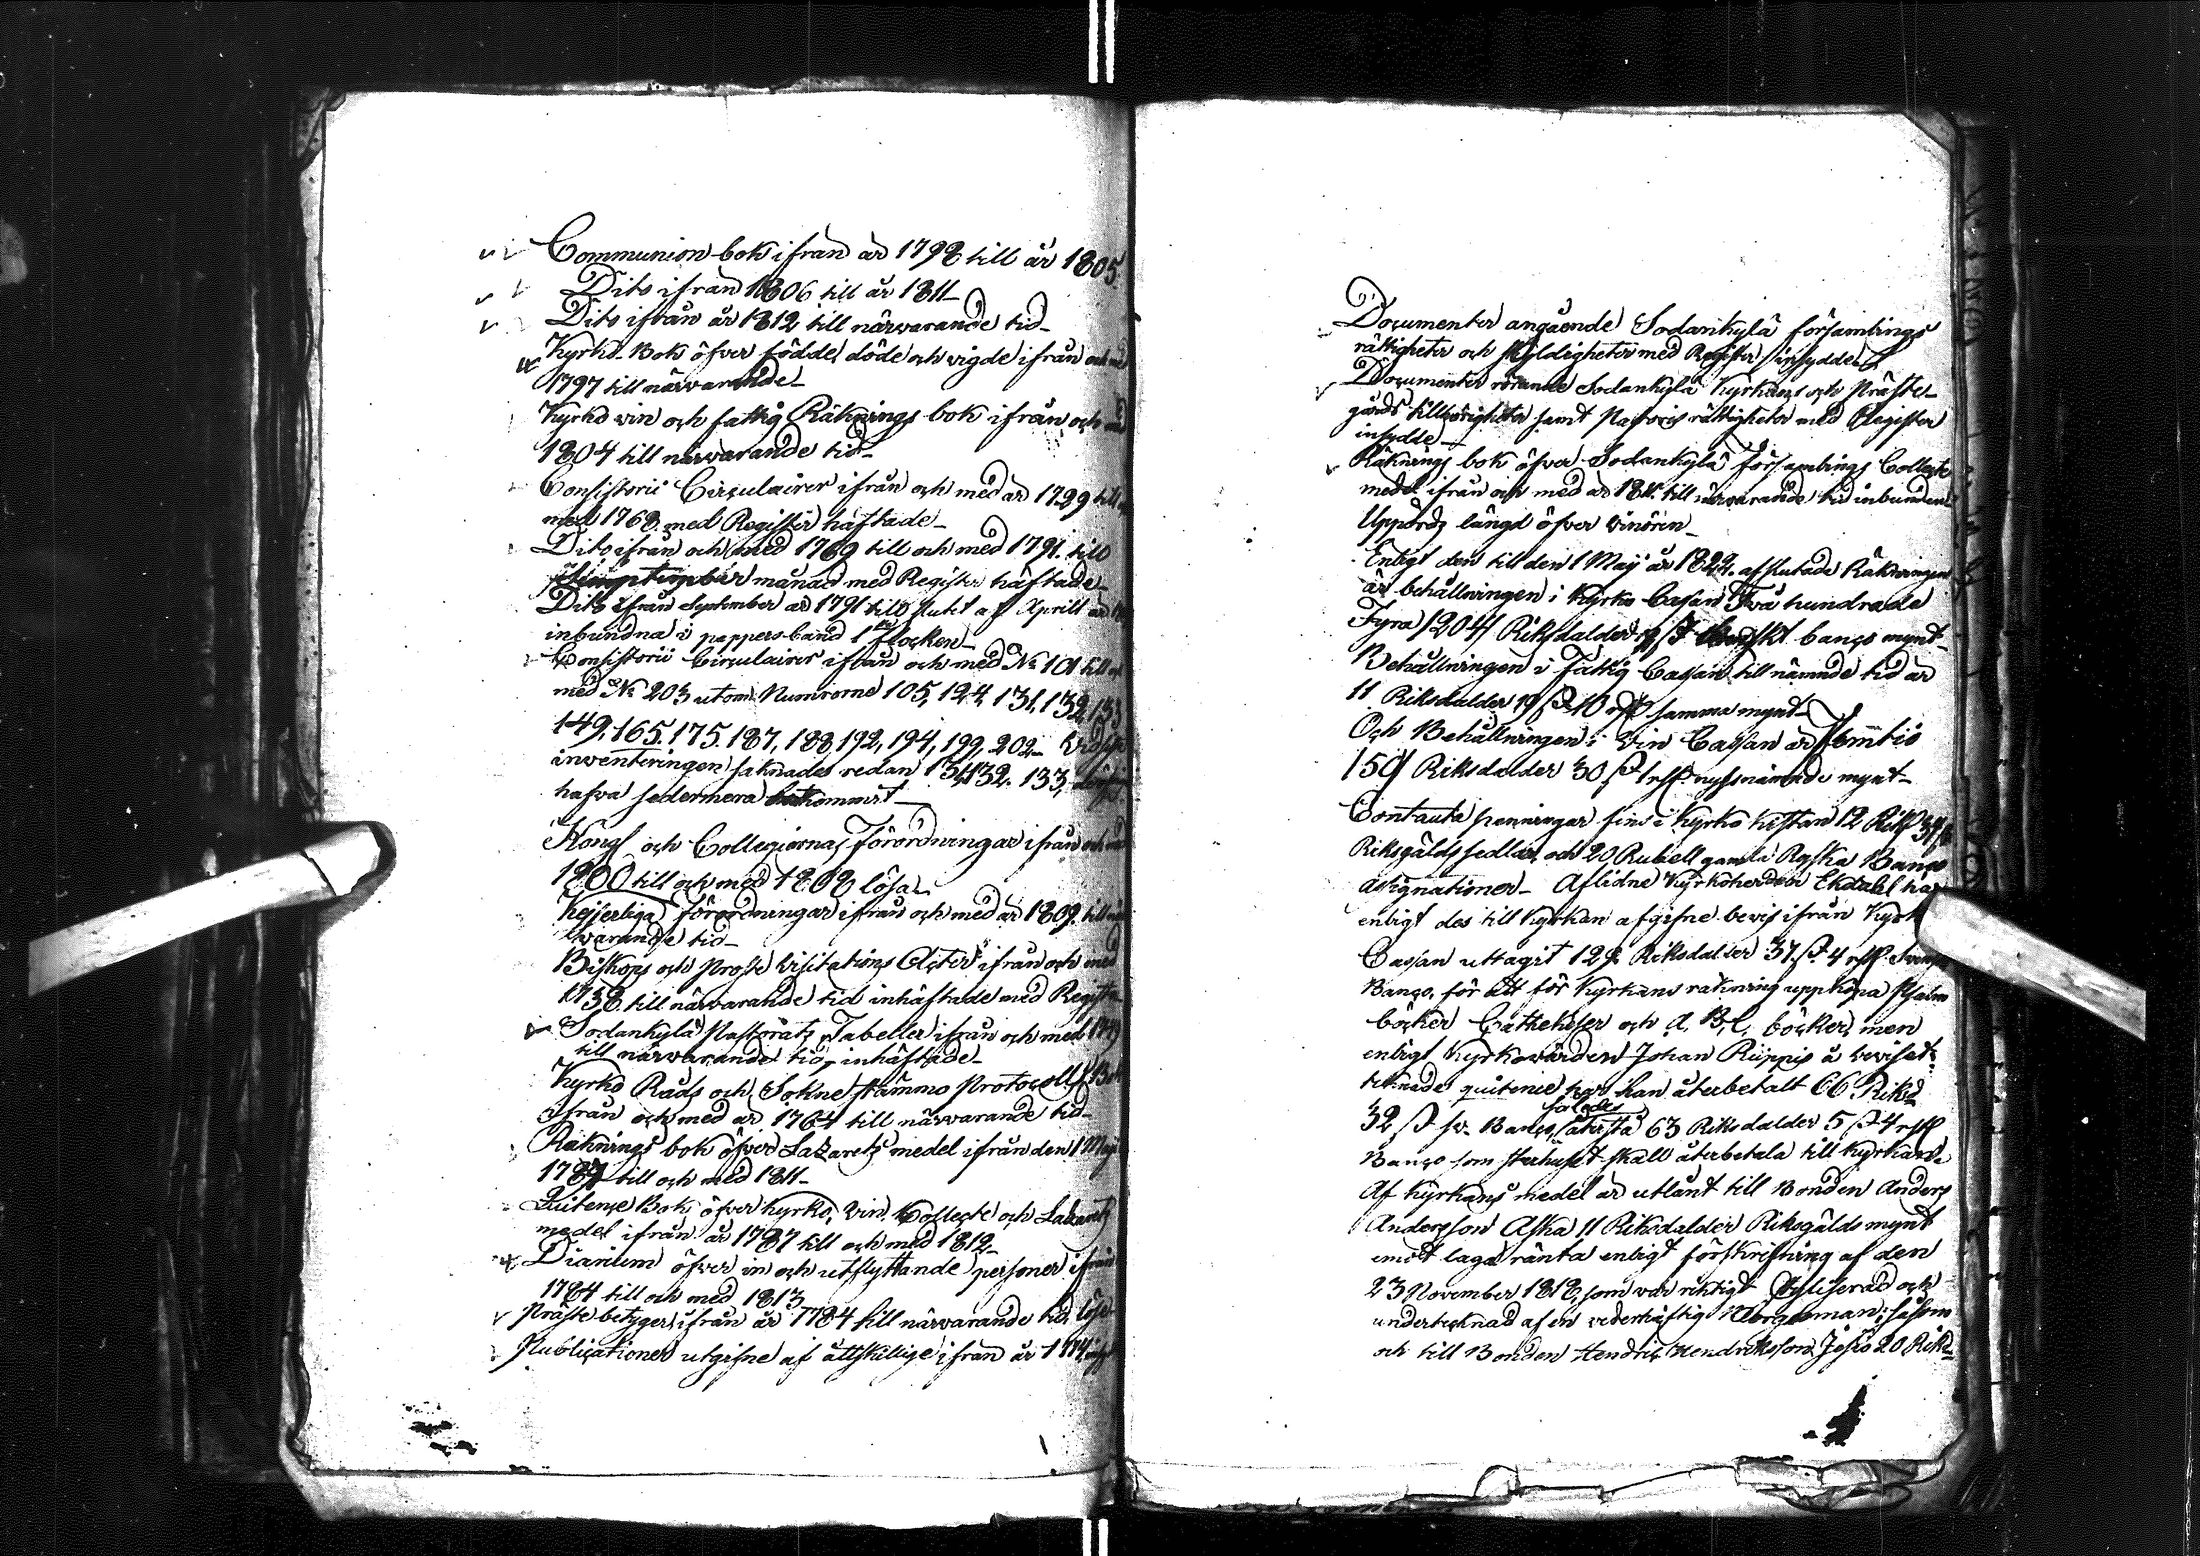 Communion bok ifrån år 1798 till år 1805
Dito ifrån 1806 till år 1811
Dito ifrån år 1812 till närvarande tid
Kyrko Bok öfver födde, döde och vigde ifrån och med
1797 till närvarande
Kyrko vin och fattig Räknings bok ifrån och med
1804 till närvarande tid
Consistorii Circulairer ifrån och med år 1729 till
med 1768 med Register häftade
Dito ifrån och med 1769 till och med 1791 till
månad med Register häftade
Dito ifrån September år 1791 till slutet af Aprill år
inbundna i pappers band
Consistorii Circulairer ifrån och med No 101 till
med No 203 utom Numrorne 105, 124, 131, 132, 133
149, 165. 175. 187, 188, 192, 194, 199. 202 Vid
inventeringen saknades redan 131, 132. 133,
hafva sedermera
Kongl och Collegiernas Förordningar ifrån och med
1800 till och med 1808 lösa
Kejserliga Förordningar ifrån och med år 1809. till när
varande tid
Biskops och Proste Visitations Acter ifrån och med
1738 till närvarande tid inhäftade med Register
Sodankylä Pastorats Tabeller ifrån och med
till närvarande tid, inhäftade
Kyrko Råds och Sokne stämmo Protocolls Bok
ifrån och med år 1764 till närvarande tid
Räknings bok öfver Lazaretts medel ifrån den 1 Maji
1787 till och med 1811
Quitence Bok öfver kyrko, vin, Collecte och Lazaretts
medel ifrån år 1787 till och med 1812
Diarium öfver in och utflyttande personer ifrån
1784 till och med 1813
Präste betyger ifrån år 1784 till närvarande tid, lösa
Publicationer utgifne af åttskillige ifrån år
Documenter angående Sodankylä församlings
rättigheter och skyldigheter med Register insydde
Documenter rörande Sodankylä Kyrkans och Präste
gårds tillhörigheter samt Pastoris rättigheter med Register
insydde
Räknings bok öfver Sodankylä församlings Collecte
medel ifrån och med år 1811. till närvarande tid inbunden
Uppbörds längd öfver vinören
Enligt den till den 1 Maij år 1822. afslutade Räkningen
är behållningen i Kyrko Cassan Två hundrade
Fyra /204/ Riksdaler banco mynt
Behållningen i Fattig Cassan till nämnde tid är
11 Riksdaler 19 ß 10 rst samma mynt
Och Behållningen i Vin Cassan är Femtio
/50/ Riksdaler 30 ß 1 rst nyssnämnde mynt
Contanta penningar fins i Kyrko kistan 12 Riksd
Riksgälds sedlar, och 20 Rubell gamla Ryska Banco
assignationer Aflidne Kyrkoherden Ekdahl har
enligt des till Kyrkan afgifne bevis ifrån Kyrko
Cassan uttagit 129 Riksdaler 37 ß 4 rst
Banco, för att för Kyrkans räkning uppköpa Psalm
böcker Cathekeser och A, B, C, böcker, men
enligt Kyrkovärden Johan Riippis å beviset
tecknade quitence har han återbetalt 66 Riksd
32 ß sv. Banco, således återstå 63 Riksdaler 5 ß 4 rst
Banco som sterbhuset skall återbetala till Kyrkan
Af Kyrkans medel är utlånt till Bonden Anders
Andersson Aska 11 Riksdaler Riksgälds mynt
emot laga ränta enligt förskrifning af den
23 November 1818, som var riktigt och
undertecknad af en vederhäftig Borgesman; såsom
och till Bonden Hendric Hendriksson Jesiö 20 Riksd